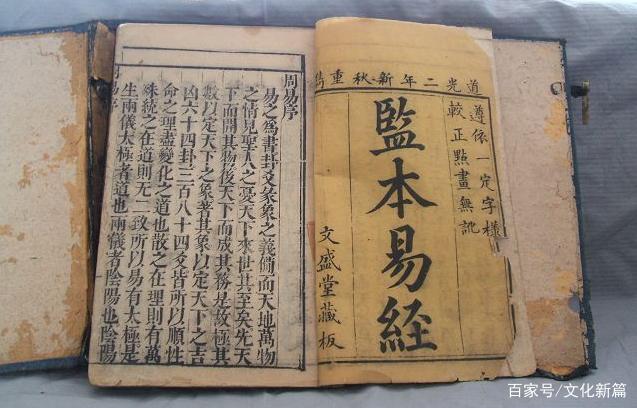 道光二年新秋重鐫
遵依一定字樣
較正點畫無訛
監本易経
文盛堂藏板
周易序
易之爲書卦爻彖象之義備而天地萬物
之情見聖人之憂天下來世其至矣先天
下而開其物後天下而成其務是故極其
數以定天下之象著其象以定天下之吉
凶六十四卦三百八十四爻皆所以順性
命之理盡變化之道也散之在理則有萬
殊統之在道則无二致所以易有太極是
生兩儀太極者道也兩儀者陰陽也陰陽
易序
百家号/文化新篇